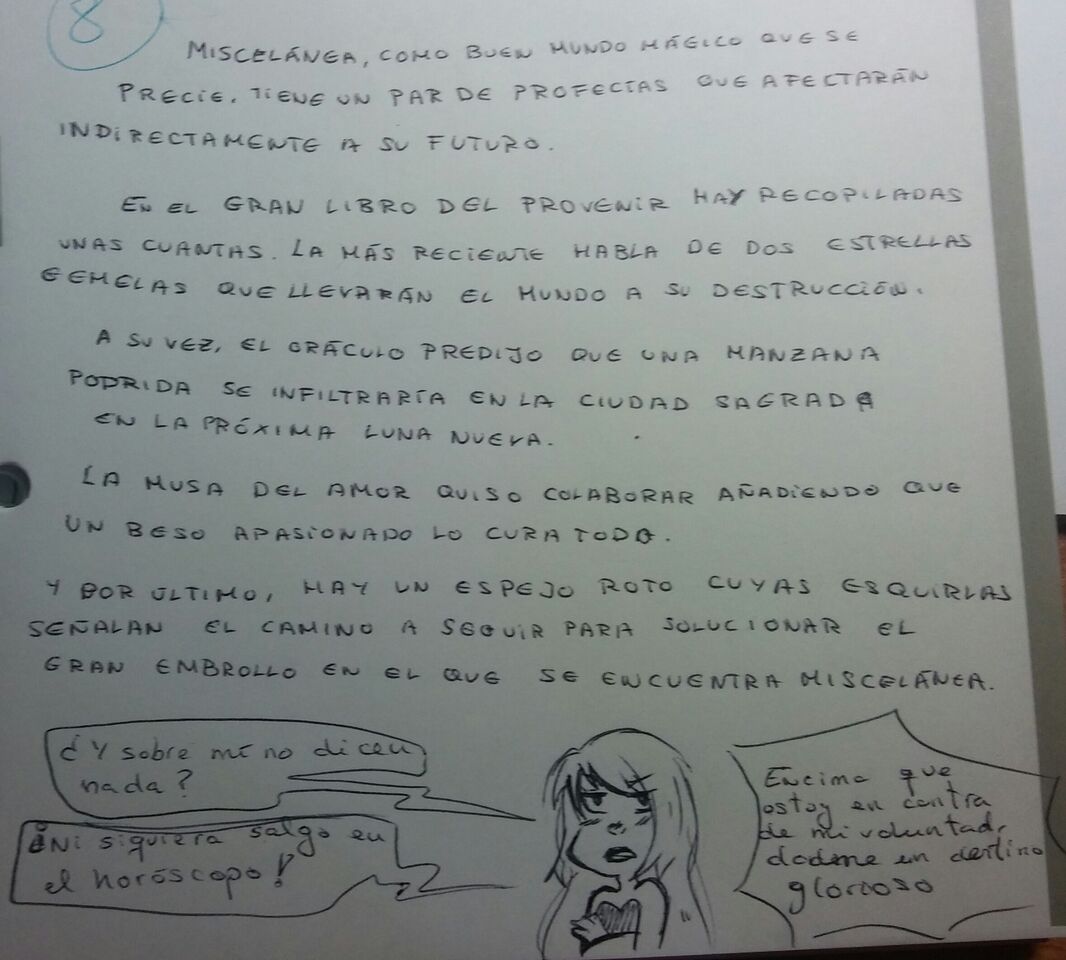 8
MISCELÁNEA, COMO BUEN MUNDO MÁGICO QUE SE
PRECIE, TIENE UN PAR DE PROFECÍAS QUE AFECTARÁN
INDIRECTAMENTE A SU FUTURO.
EN EL GRAN LIBRO DEL PROVENIR HAY RECOPILADAS
UNAS CUANTAS. LA MÁS RECIENTE HABLA DE DOS ESTRELLAS
GEMELAS QUE LLEVARÁN EL MUNDO A SU DESTRUCCIÓN.
A SU VEZ, EL ORÁCULO PREDIJO QUE UNA MANZANA
PODRIDA SE INFILTRARÍA EN LA CIUDAD SAGRADA
EN LA PRÓXIMA LUNA NUEVA.
LA MUSA DEL AMOR QUISO COLABORAR AÑADIENDO QUE
UN BESO APASIONADO LO CURA TODO.
Y POR ÚLTIMO, HAY UN ESPEJO ROTO CUYAS ESQUIRLAS
SEÑALAN EL CAMINO A SEGUIR PARA SOLUCIONAR EL
GRAN EMBROLLO EN EL QUE SE ENCUENTRA MISCELÁNEA.
¿Y sobre mí no dicen
nada?
¡Ni siquiera salgo en
el horóscopo!
Encima que
estoy en contra
de mi voluntad,
dadme un destino
glorioso